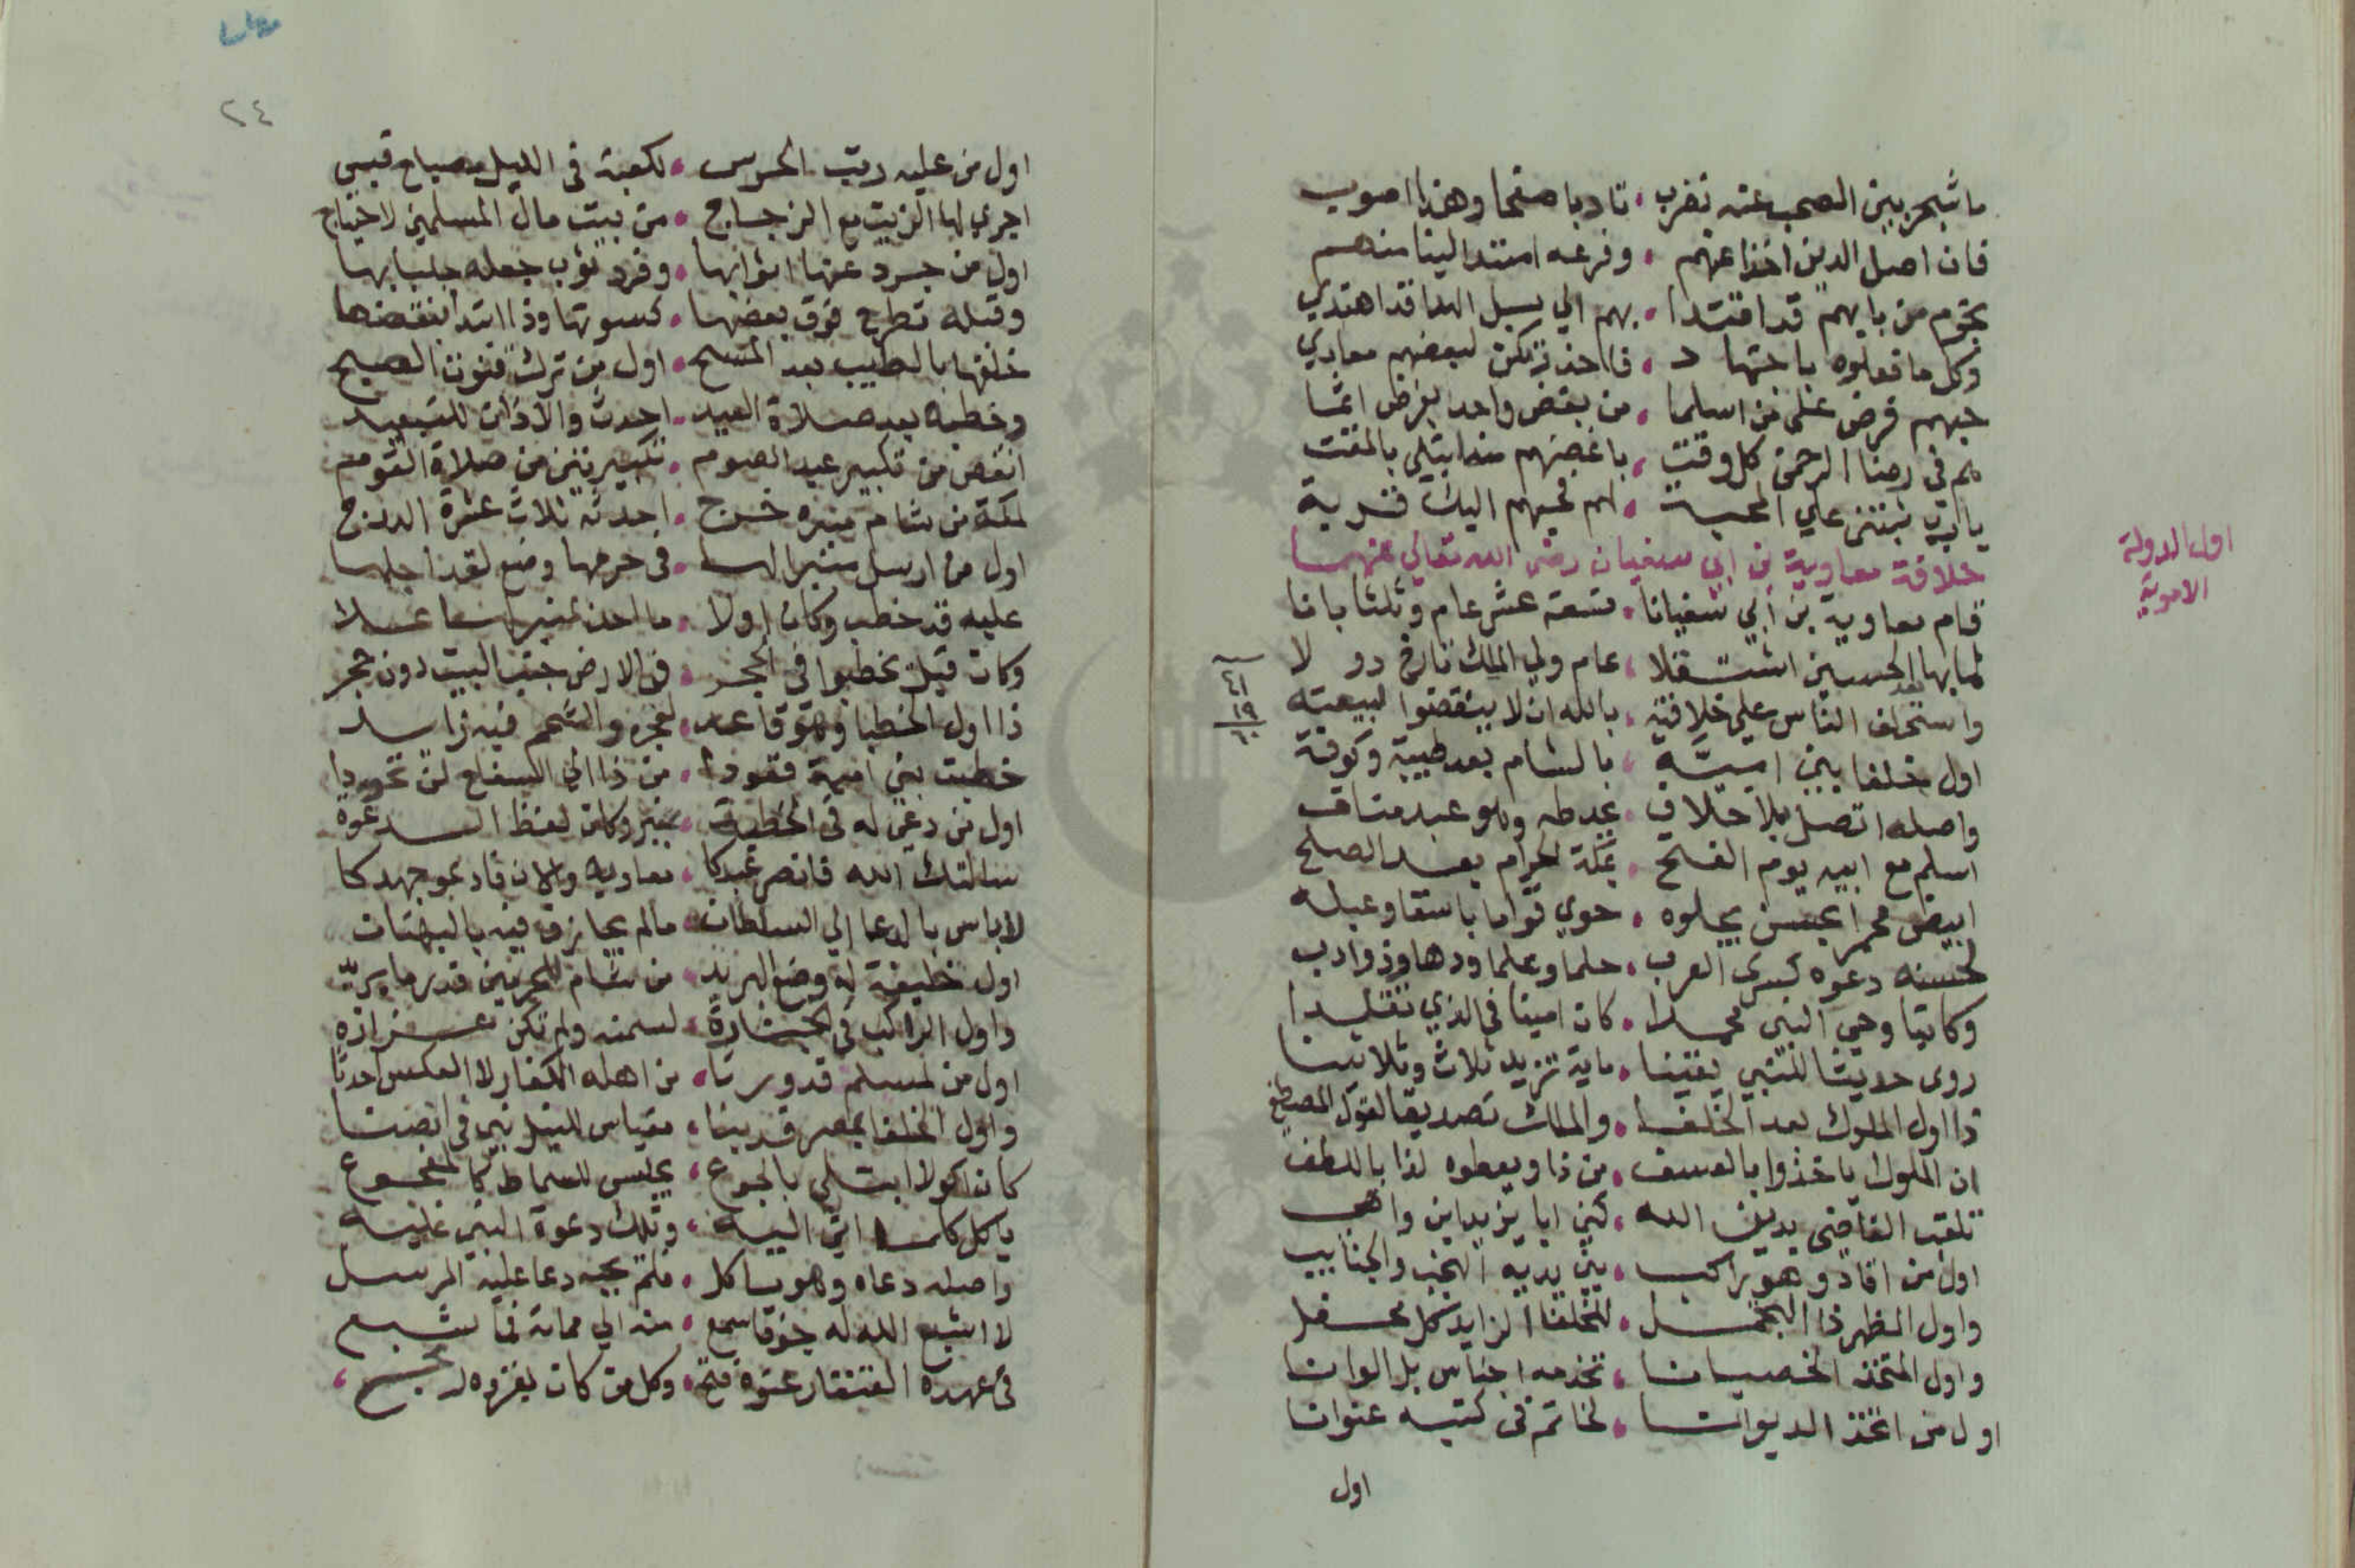 ما شجر بين الصحب عنه نضرب ، تادبا صفحا وهذا اصوب
فان اصل الدين اخذا عنهم ، وفرعه امتد الينا منهم
نجوم من بايهم قد اقتدا ، بهم الي سبل الهدا قد اهتدي
وكل ما فعلوه باجتهاد ، فااحذر تكن لبعضهم معادي
حبهم فرض علي من اسلما ، من بغض واحد بفرض اثما
هم في رضا الرحمن كل وقت ، باغضهم منا ابتلي بالمقت
يا رب ثبتني علي المحبة ، لهم فحبهم اليك قربة
خلافة معاوية بن ابي سفيان رضي الله تعالي عنهما
اول الدولة
الاموية
قام معاوية بن ابي سفيانا ، تسعة عشر عام وثلثا بانا
لها بها الحسين استقلا ، عام ولي الملك تارخ دو لا
٤١
١٩
٦٠
واستحلف الناس علي خلافته ، بالله ان لا ينقضوا لبيعته
اول خلفا بني امية ، بالشام بعد طيبة وكوفة
واصله اتصل بلا خلاف ، بجد طه وهو عبد مناف
اسلم مع ابيه يوم الفتح ، بمكة الحرام بعد الصلح
ابيض محمرا بحسن يجلوه ، حوي قواما باسقا وعبله
لحسنه دعوه كسري العرب ، حلما وعلما ودها وذو ادب
وكاتبا وحي النبي محمدا ، كان امينا في الذي تقلدا
روي حديثا للنبي يقينا ، ماية تزيد ثلاث وثلاثينا
ذا اول الملوك بعد الخلفا ، والملك تصديقا لقول المصطفي
ان الملوك ياخذوا بالعسف ، من ذا ويعطوه لذا باللطف
تلقب القاضي بدين الله ، كني ابا يزيد ابن واهب
اول من اقاد وهو راكب ، بين يديه النجب والجنايب
واول المظهر ذا التجمل ، للخلفا الزايد كل محفل
واول المتخذ الخصيانا ، تخدمه اجناس بل الوانا
اول من اتخذ الديوانا ، لخاتم في كتبه عنوانا
اول
٢٤
اول من عليه رتب الحرس ، لكعبة في الليل مصباح قبس
اجري لها الزيت مع الزجاج ، من بيت مال المسلمين لاحتياج
اول من جرد عنها اثوابها ، وفرد ثوب جعله جلبابها
وقبله تطرح فوق بعضها ، كسوتها وذا ابتدا بنقضها
خلقها بالطيب بعد المسح ، اول من ترك قنوت الصبح
وخطبة بعد صلاة العيد ، احدث والاذان للتبعيد
انقص من تكبير عيد الصوم ، تكبيرتين من صلاة القوم
لمكة من شام منبره خرج ، احدثه ثلاث عشرة الدرج
اول من ارسل منبرا لها ، في حرمها وضع لقد اجلها
عليه قد خطب وكان اولا ، ما احد بمنبر لها علا
وكان قبل يخطبوا في الحجر ، في الارض جنب البيت دون حجر
ذا اول الخطبا وهو قاعد ، لعجزه والشحم فيه زايد
خطبت بني امية قعودا ، من ذا الي السفاح لن تحيدا
اول من دعي له في الخطبة ، بمنبر وكان لفظ الدعوة
سالتك الله فانصر عبدكا ، معاوية والان فادعو جهدكا
لا باس بالدعا الي السلطان ، مالم يجازف فيه بالبهتان
اول خليفة له وضع البريد ، من شام للحرمين قدر ما يريد
واول الراكب في الجنازة ، لسمنه ولم تكن عزازه
اول من لمسلم قد ورثا ، من اهله الكفار لا العكس احدثا
واول الخلفا بمصر قد بنا ، مقياس للنيل بني في انصنا
كان اكولا ابتلي بالجوع ، يجلس للسماط كالفجوع
ياكل كلما اتي اليه ، وتلك دعوة النبي عليه
واصله دعاه وهو ياكل ، فلم يجبه دعا عليه المرسل
لا اشبع الله له جوفا سمع ، منه الي مماته فما شبع
في عهده القنقار عنوة فتح ، وكل من كان بغزوه ربح ،